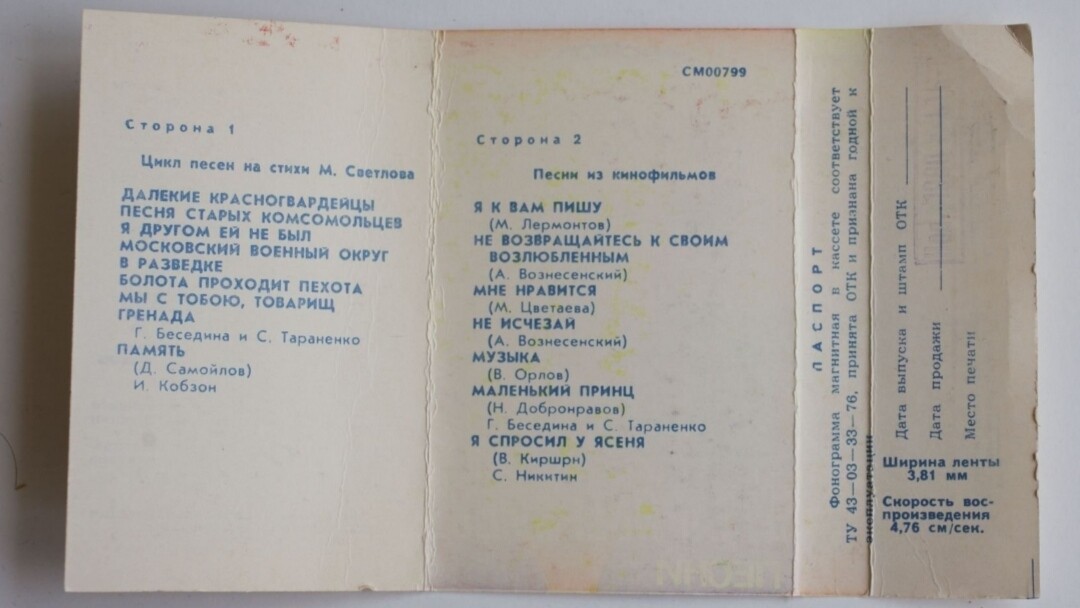 Сторона 1
Цикл песен на стихи М. Светлова
ДАЛЕКИЕ КРАСНОГВАРДЕЙЦЫ
ПЕСНЯ СТАРЫХ КОМСОМОЛЬЦЕВ
Я ДРУГОМ ЕЙ НЕ БЫЛ
МОСКОВСКИЙ ВОЕННЫЙ ОКРУГ
В РАЗВЕДКЕ
БОЛОТА ПРОХОДИТ ПЕХОТА
МЫ С ТОБОЮ, ТОВАРИЩ
ГРЕНАДА
Г. Беседина и С. Тараненко
ПАМЯТЬ
(Д. Самойлов)
И. Кобзон
СМ00799
Сторона 2
Песни из кинофильмов
Я К ВАМ ПИШУ
(М. Лермонтов)
НЕ ВОЗВРАЩАЙТЕСЬ К СВОИМ
ВОЗЛЮБЛЕННЫМ
(А. Вознесенский)
МНЕ НРАВИТСЯ
(М. Цветаева)
НЕ ИСЧЕЗАЙ
(А. Вознесенский)
МУЗЫКА
(В. Орлов)
МАЛЕНЬКИЙ ПРИНЦ
(Н. Добронравов)
Г. Беседина и С. Тараненко
Я СПРОСИЛ У ЯСЕНЯ
(В. Киршрн)
С. Никитин
ПЕСНИ
ПАСПОРТ
Фонограмма магнитная в кассете соответствует
ТУ 43—03—33—76, принята ОТК и признана годной к
эксплуатации
Дата выпуска и штамп ОТК
Дата продажи
Место печати
Ширина ленты
3,81 мм
Скорость вос-
произведения
4,76 см/сек.